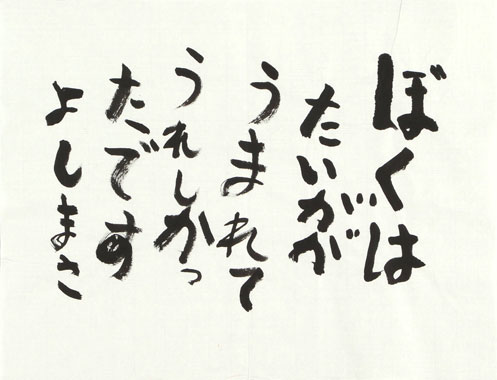 ぼくは
たいがが
うまれて
うれしかっ
たです
よしまさ